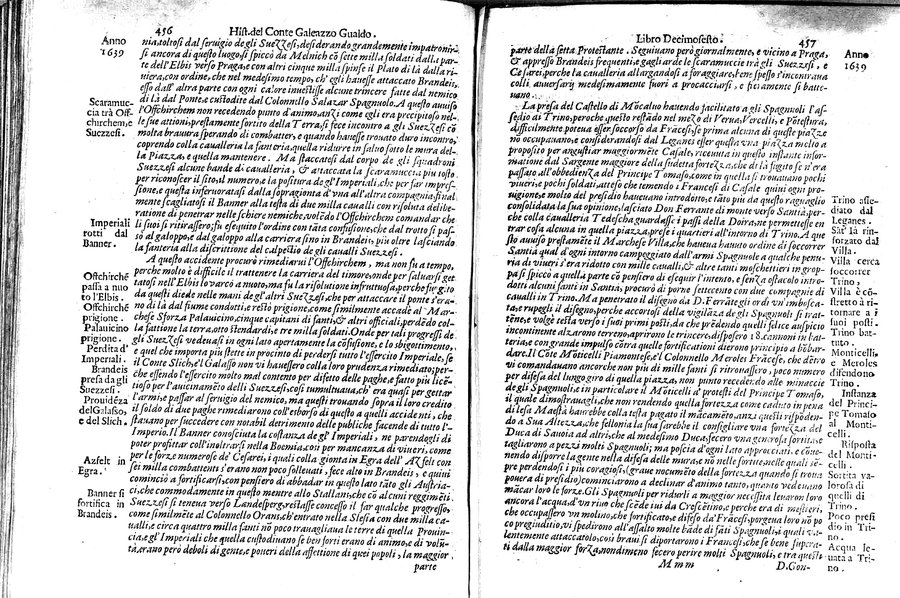 456
Hist. del Conte Galeazzo Gualdo.
Anno
1639
Scaramuc-
cia trà Off-
chirchem, e
Suezzesi.
Imperiali
rotti dal
Banner.
Offchirchē
passa a nuo
to l'Elbis.
Offchirchē
prigione.
Palauicino
prigione.
Perdita d'
Imperiali.
Brandeis
presa da gli
Suezzesi.
Prouidēza
del Galasso,
e del Slich.
Azfelt in
Egra.
Banner si
fortifica in
Brandeis.
nia, toltosi dal seruigio degli Suezzesi, desiderando grandemente impatronir-
si ancora di questo luogo, si spiccò da Melnich cō sette mila soldati dal a par-
te dell'Elbis verso Praga, e con altri cinque mila spinse il Plato di là dalla ri-
uiera, con ordine, che nel medesimo tempo, ch'egli hauesse attaccato Brandeis,
esso dall'altra parte con ogni calore inuestisse alcune trincere fatte dal nemico
di là dal Ponte, e custodite dal Colonnello Salazar Spagnuolo. A questo auuiso
l'Offchirchem non recedendo punto d'animo, anzi come egli era precipitoso nel-
le sue attioni, prestamente sortito della Terra, si fece incontro a gli Suezzesi cō
molta brauura sperando di combatter, e quando hauesse trouato duro incontro,
coprendo colla caualleria la fanteria, quella ridurre in saluo sotto le mura del-
la Piazza, e quella mantenere. Ma staccatesi dal corpo de gli squadroni
Suezzesi alcune bande di caualleria, & attaccata la scaramuccia più tosto
per riconoscer il sito, il numero, e la positura de gl'Imperiali, che per far impres-
sione, e questa inferuoratasi dalla sopragionta d'vna all'altra compagnia, final-
mente scagliatosi il Banner alla testa di due milla caualli con risoluta delibe-
ratione di penetrar nelle schiere nemiche, volēdo l'Offchirchem comandar che
li suoi si ritirassero, fu eseguito l'ordine con tāta confusione, che dal trotto si pas-
sò al galoppo, e dal galoppo alla carriera sino in Brandeis, più oltre lasciando
la fanteria alla discrittione del calpestio de gli caualli Suezzesi.
A questo accidente procurò rimediarui l'Offchirchem, ma non fu a tempo,
perche molto è difficile il trattenere la carriera del timore, onde per saluarsi get
tatosi nell'Elbis lo varcò a nuoto, ma fu la risolutione infruttuosa, perche fuggito
da questi diede nelle mani degl'altri Suezzesi, che per attaccare il ponte s'era-
no di là dal fiume condotti, e restò prigione, come similmente accade al Mar-
chese Sforza Palauicino, cinque capitani di fanti, & altri officiali, perdēdo col-
la fattione la terra, otto stendardi, e tre mila soldati. Onde per tali progressi de
gli Suezzesi vedeuasi in ogni lato apertamente la cōfusione, e lo sbigottimento,
e quel che importa più stette in procinto di perdersi tutto l'essercito Imperiale, se
il Conte Slich, e'l Galasso non vi hauessero colla loro prudenza rimediato; per-
che essendo l'essercito molto mal contento per difetto delle paghe, e fatto più licē-
tioso per l'auicinamēto delli Suezzesi, così tumultuaua, ch'era quasi per gettar
l'armi, e passar al seruigio del nemico, ma questi trouando sopra il loro credito
il soldo di due paghe rimediarono coll'esborso di questo a quelli accidēti, che
stauano per succedere con notabil detrimento delle publiche facende di tutto l'-
Imperio. Il Banner conosciuta la costanza de gl'Imperiali, ne parendogli di
poter profittar coll'inoltrarsi nella Boemia, così per mancanza di viueri, come
per le forze numerose de' Cesarei, i quali colla gionta in Egra dell'Azfelt con
sei milla combattenti s'erano non poco solleuati, fece alto in Brandeis, e quiui
cominciò a fortificarsi, con pensiero di abbadar in questo lato tāto gli Austria-
ci, che commodamente in questo mentre allo Stallans, che cō alcuni reggimēti
Suezzesi si teneua verso Landesperg, restasse concesso il far qualche progresso,
come similmēte al Colonnello Orans, ch'entrato nella Slesia con due milla ca-
ualli, e circa quattro milla fanti nō poco trauagliaua le terre di quella Prouin-
cia, e gl'Imperiali che quella custodinano se ben forti erano di animo, e di volū-
tà, erano però deboli di gente, e poueri della affettione di quei popoli, la maggior
parte
Libro Decimosesto.
457
Anno
1639
parte della setta Protestante. Seguiuano però giornalmente, e vicino a Praga,
& appresso Brandeis frequenti, e gagliarde le scaramuccie trà gli Suezzesi, e
Cesarei, perche la caualleria allargandosi a foraggiare, bene spesso s'incontraua
colli auuersarij medesimamente fuori a procacciarsi, e fieramente si batte-
uano.
La presa del Castello di Mōcaluo hauendo facilitato a gli Spagnuoli l'as-
sedio di Trino, perochè, questo restādo nel mezo di Verua, Vercelli, e Pōtestura,
difficilmente poteua esser soccorso da Frācesi, se prima alcuna di queste piazze
nō occupauano, e considerandosi dal Leganes esser questa vna piazza molto a
proposito per angustiar maggiormēte Casale, riceuuta in questo instante infor-
matione dal Sargente maggiore della sudetta fortezza, che di là fugito se n'era
passato all'obbedienza del Principe Tomaso, come in quella si trouauano pochi
viueri, e pochi soldati, atteso che temendo i Francesi di Casale quiui ogni pro-
uigione, e molto del presidio haueuano introdotto, e tāto più da questo raguaglio
consolidata la sua opinione, lasciato Don Ferrante di monte verso Santià, per-
che colla caualleria Tedesca guardasse i passi della Doira, ne permettesse en
trar cosa alcuna in quella piazza, prese i quartieri all'intorno di Trino. A que
sto auuiso prestamēte il Marchese Villa, che haueua hauuto ordine di soccorrer
Santià qual'ora ogni intorno campeggiato dall'armi Spagnuole a qualche penu-
ria di viueri s'era ridotto con mille caualli, & altre tanti moschettieri in grop-
pa si spiccò a quella parte cō pensiero di esequir l'intento, e senza ostacolo intro-
dotti alcuni fanti in Santià, procurò di porne settecento con due compagnie di
caualli in Trino. Ma penetrato il disegno da D. Ferrāte gli ordì vn'imbosca-
ta, e rupegli il disegno, perche accortosi della vigilāza de gli Spagnuoli si trat-
tene, e volgè testa verso i suoi primi posti, da che prēdendo quelli felice auspicio
incontinente alzarono terreno, aprirono le trincere, disposero 18. cannoni in bat-
teria, e con grande impulso cōtra quelle fortificationi dierono principio a bōbar-
dare. Il Cōte Mōticelli Piamontese, e'l Colonnello Meroles Frācese, che dētro
vi comandauano ancorche non più di mille fanti si ritrouassero, poco numero
per difesa del lungo giro di quella piazza, non punto recedendo alle minaccie
de gli Spagnuoli, & in particolare il Mōticelli a' protesti del Principe Tomaso,
il quale dimostrauagli, che non rendendo quella fortezza come caduto in pena
di lesa Maestà haurebbe colla testa pagato il mācamēto, anzi questi rispōden-
do a Sua Altezza, che fellonia la sua sarebbe il consigliare vna fortezza del
Duca di Sauoia ad altri, che al medesimo Duca, fecero vna generosa sortita, e
tagliarono a pezzi molti Spagnuoli; ma poscia d'ogni lato approcciati, e conue-
nendo disporre la gente nella difesa delle mura, & nō nelle sortite, nelle quali sē-
pre perdendosi i più coragiosi, (graue nocumēto della fortezza quando si troua
pouera di presidio) cominciarono a declinar d'animo tanto, quanto vedeuano
mācar loro le forze. Gli Spagnuoli per ridurli a maggior necessità leuarono loro
ancora l'acqua d'vn rium che scēde iui da Crescētino, e perche era di mestieri,
che occupassero vn molino, che fortificato, e difeso da' Frācesi, porgeua loro nō po
co pregiuditio, vi spedirono all'assalto molte bāde di fāti Spagnuoli, da quali va-
lentemente attaccatolo, così braui si diportarono i Francesi, che se bene supera-
ti dalla maggior forza, nondimeno fecero perire molti Spagnuoli, e tra questi
Mmm
D. Gon-
Trino asse-
diato dal
Leganes.
Sātià rin-
forzato dal
Villa.
Villa cerca
soccorrer
Trino,
Villa è cō-
stretto à ri-
tornare a i
suoi posti.
Trino bat-
tuto.
Monticelli,
e Meroles
difendono
Trino.
Instanza
del Princi-
pe Tomaso
al Monti-
celli.
Risposta
del Monti-
celli.
Sortita va-
lorosa di
quelli di
Trino.
Poco presi
dio in Tri-
no.
Acqua le-
uata a Tri-
no.